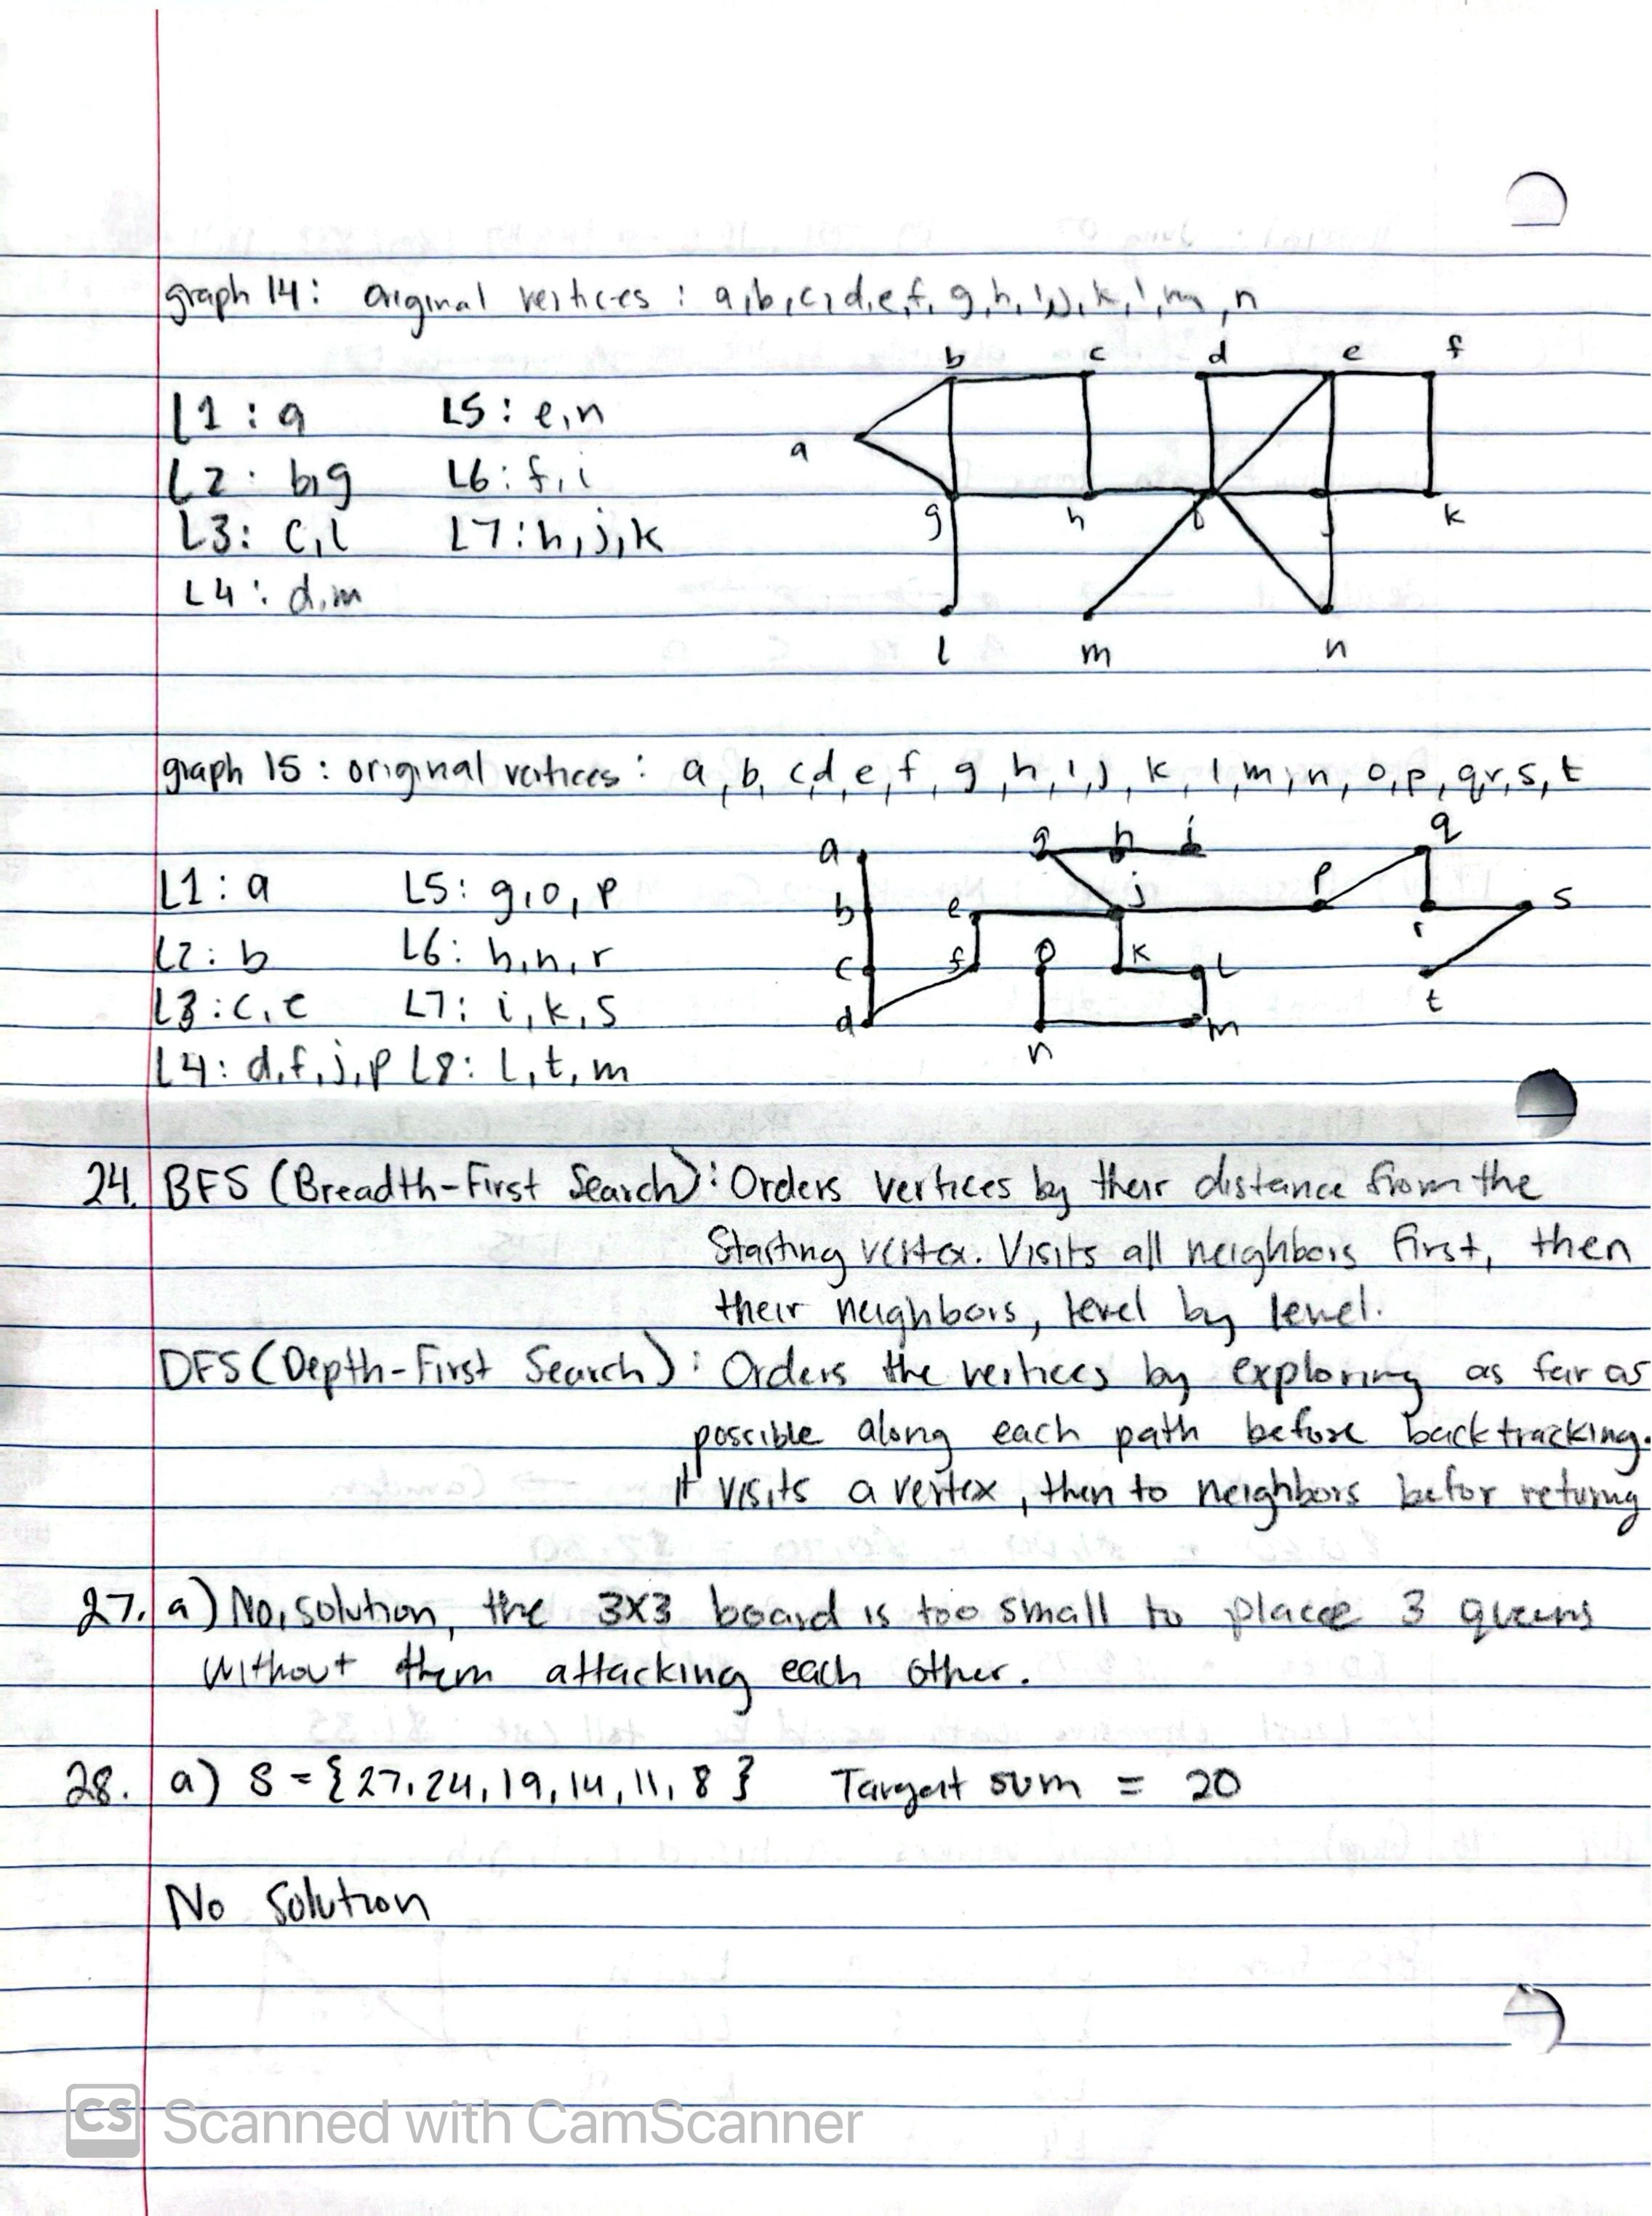 graph 14: original vertices : a,b,c,d,e,f, g,h,i,j,k,l,m,n
b c d e f
L1 : a L5 : e,n
a
L2 : b,g L6 : f,i
g h j k
L3: c,l L7 : h,j,k
L4 : d,m
l m n
graph 15 : original vertices : a, b, c,d, e, f, g, h, i, j, k, l, m, n, o, p, q,r,s, t
a g h i q
L1 : a L5 : g,o,p
b e j p r s
L2 : b L6 : h,n,r
c f o k l t
L3 : c,e L7 : i,k,s
d n m
L4 : d,f,j,p L8 : l,t,m
24. BFS (Breadth-First Search): Orders vertices by their distance from the
Starting vertex. Visits all neighbors first, then
their neighbors, level by level.
DFS (Depth-First Search): Orders the vertices by exploring as far as
possible along each path before backtracking.
It visits a vertex, then to neighbors befor returing
27. a) No, solution, the 3x3 board is too small to place 3 queens
without them attacking each other.
28. a) S = {27,24,19,14,11,8} Target sum = 20
No Solution
CS Scanned with CamScanner